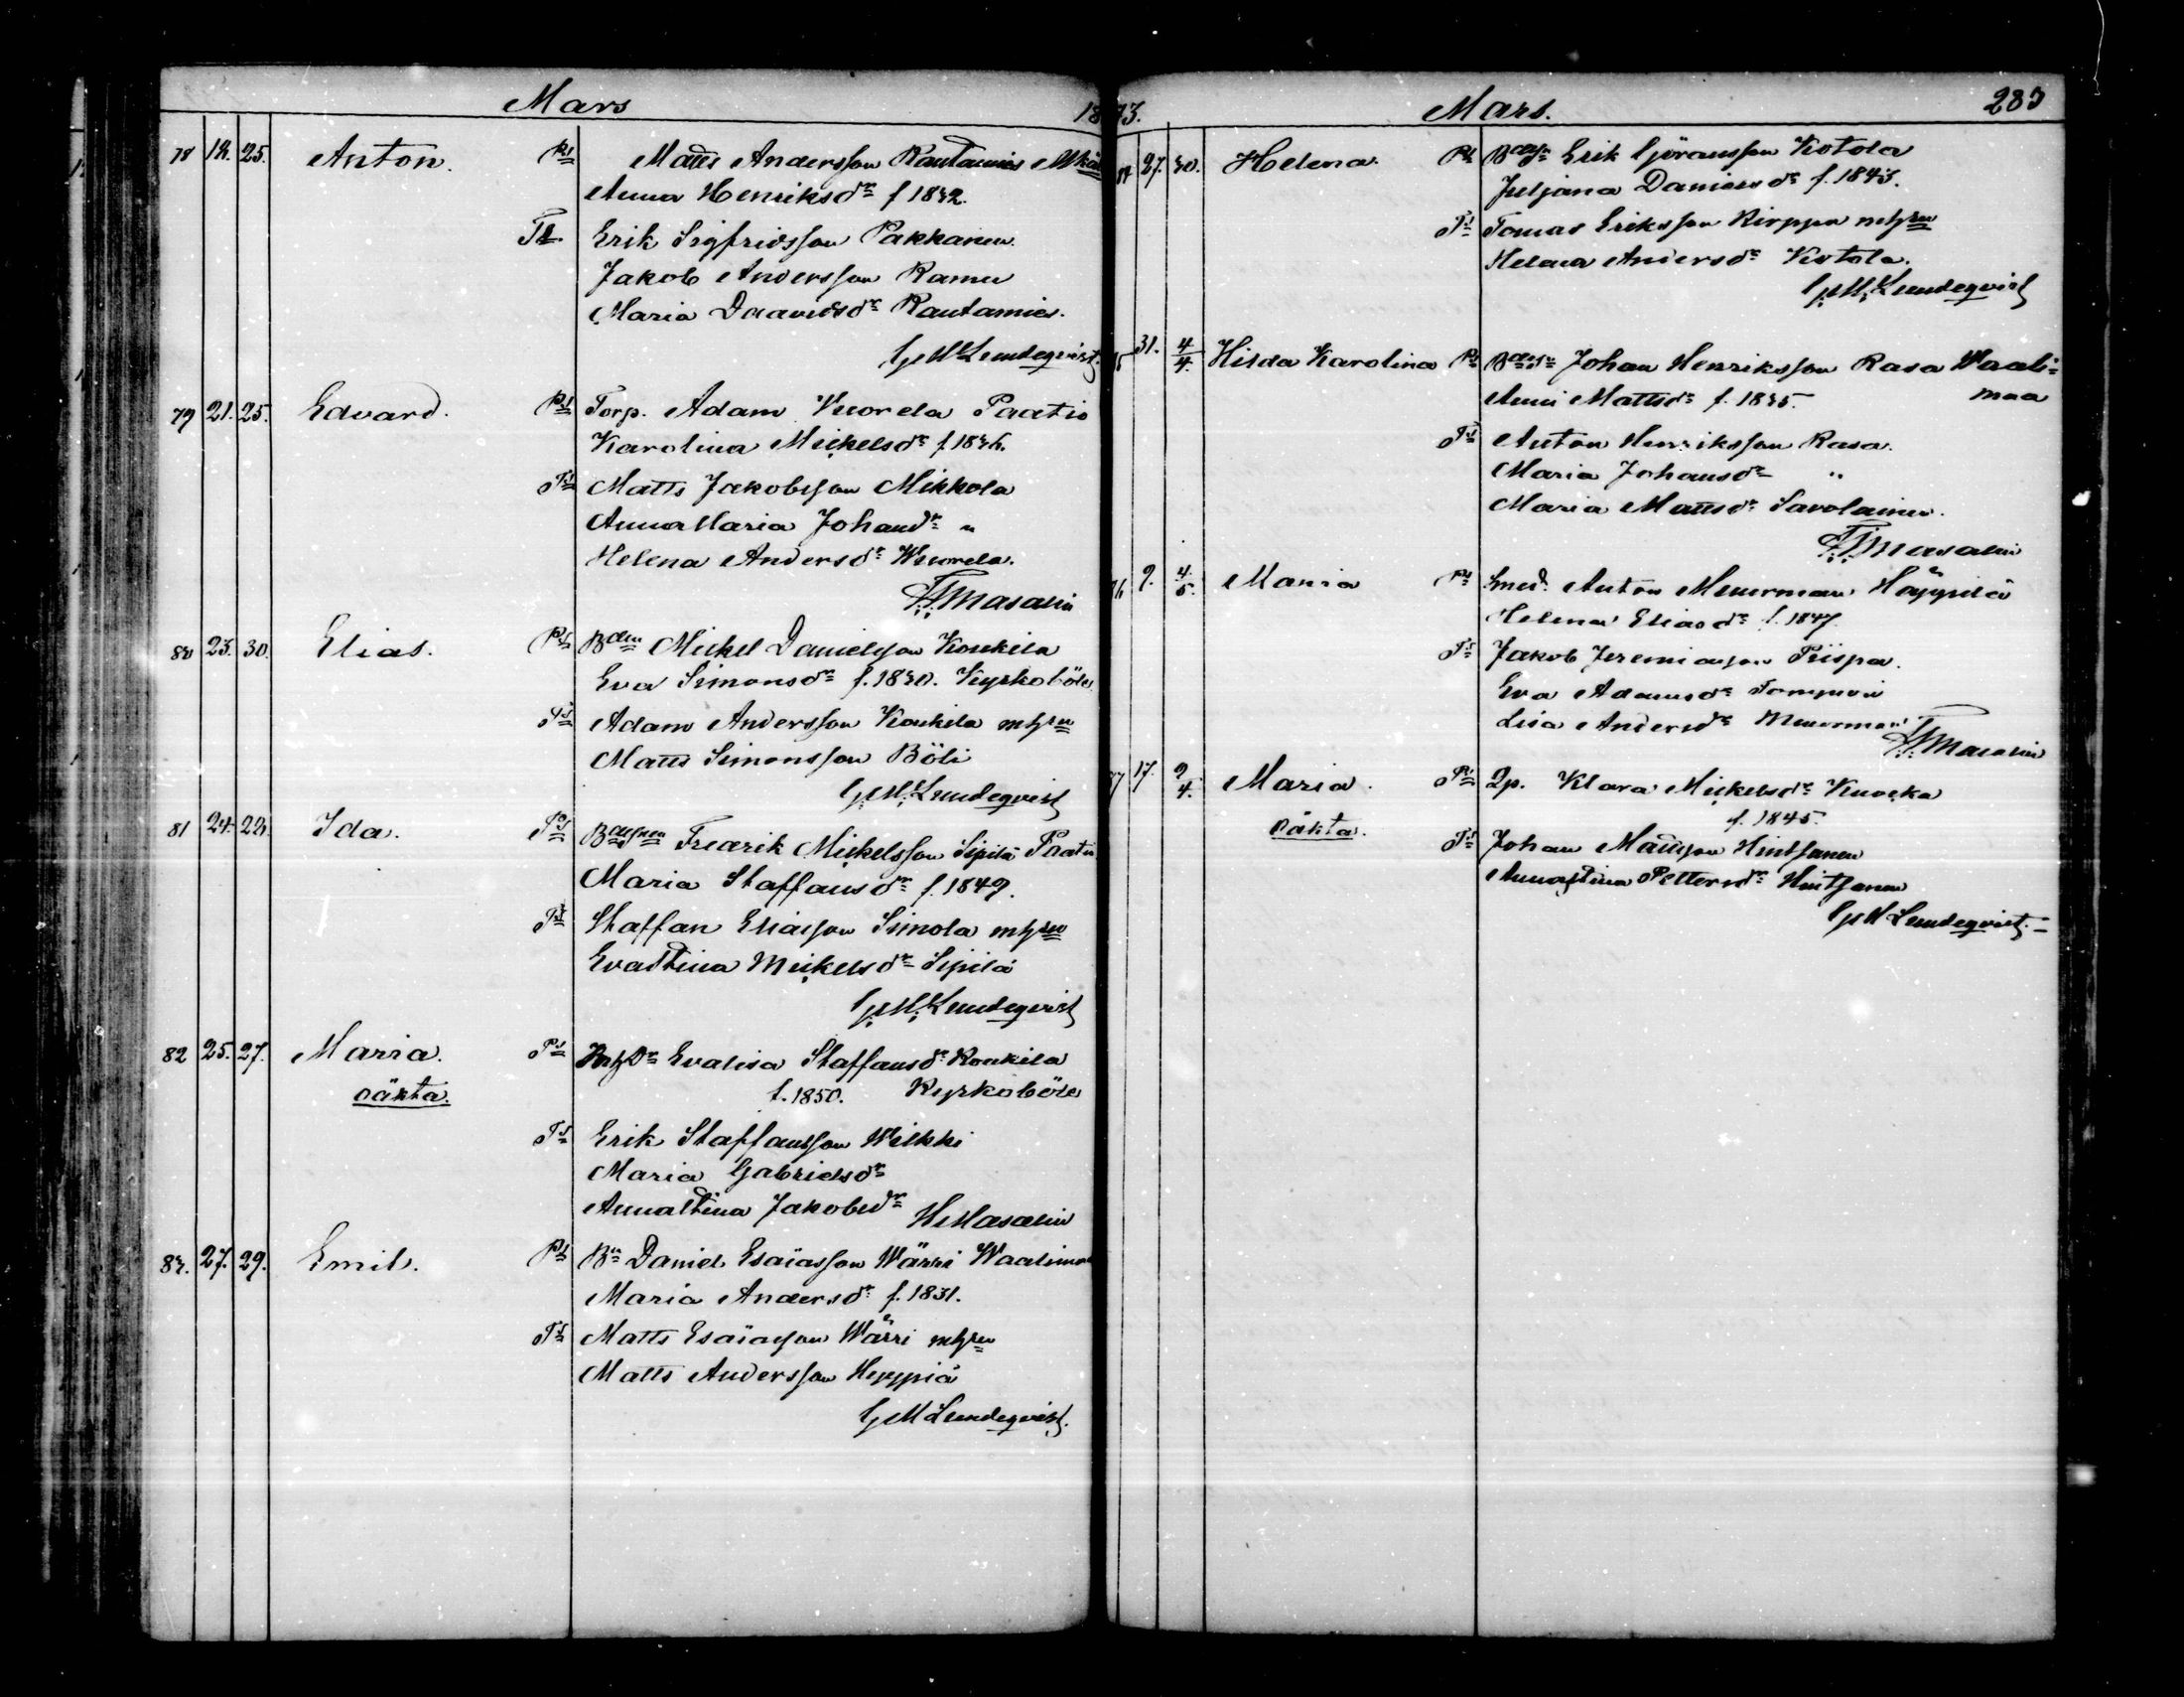 Mars 1873.
78 18. 25. Anton. Ps Matts Andersson Rautamies
Anna Henriksdr f 1832.
Ts. Erik Sigfridsson Pakkanen.
Jakob Andersson Ramu
Maria Daavidsdr Rautamies.
G.M. Lundeqvist.
79 21. 25. Edvard. Ps Torp. Adam Wuorela Paatio
Karolina Mickelsdr f. 1836.
Ts Matts Jakobsson Mikkola
Anna Maria Johansdr "
Helena Andersdr Wuorela.
Masalin
80 23. 30. Elias. Ps Bden Mickel Danielsson Koukila
Eva Simonsdr f. 1830. Kyrkoböle
Ts Adam Andersson Koukila m hru
Matts Simonsson Böli
G.M. Lundeqvist
81 24. 28. Ida. Ps Fredrik Mickelsson Sipilä Paatio
Maria Staffansdr f. 1849.
Ts Staffan Eliasson Simola m hru
Evastina Mickelsdr Sipilä
G.M. Lundeqvist
82 25. 27. Maria. Ps Evalisa Staffansdr Koukila
oäkta. f. 1850. Kyrkoböle
Ts Erik Staffansson Wilkki
Maria Gabrielsdr
Annastina Jakobsdr Masalin
83. 27. 29. Emil. Ps Bn Daniel Esaiasson Wärri Waalimaa
Maria Andersdr f. 1831.
Ts Matts Esaiasson Wärri m hru
Matts Andersson Heyppiä
G M Lundeqvist.
Mars. 283
84 27. 30. Helena. Ps Erik Göransson Kotola
Juljana Danielsdr f. 1843.
Ts Tomas Eriksson Kirppu m hru
Helena Andersdr Kotola.
G.M. Lundeqvist
31. 4/4. Hilda Karolina Ps Johan Henriksson Rasa Waali-
Anni Mattsdr f. 1835. maa
Ts Anton Henriksson Rasa.
Maria Johansdr "
Maria Mattsdr Savolainen.
Masalin
9. 4/5. Maria Ps Smed. Anton Meurman Häyppilä
Helena Eliasdr f. 1847.
Ts Jakob Jeremiasson Piispa.
Eva Adamsdr
Lisa Andersdr Meurman
Masalin
17. 9/4. Maria. Ps Qp. Klara Mickelsdr Kuoska
oäkta. f. 1845.
Ts Johan Mattsson Hintsanen
Annastina Pettersdr Hintsanen
G M Lundeqvist.